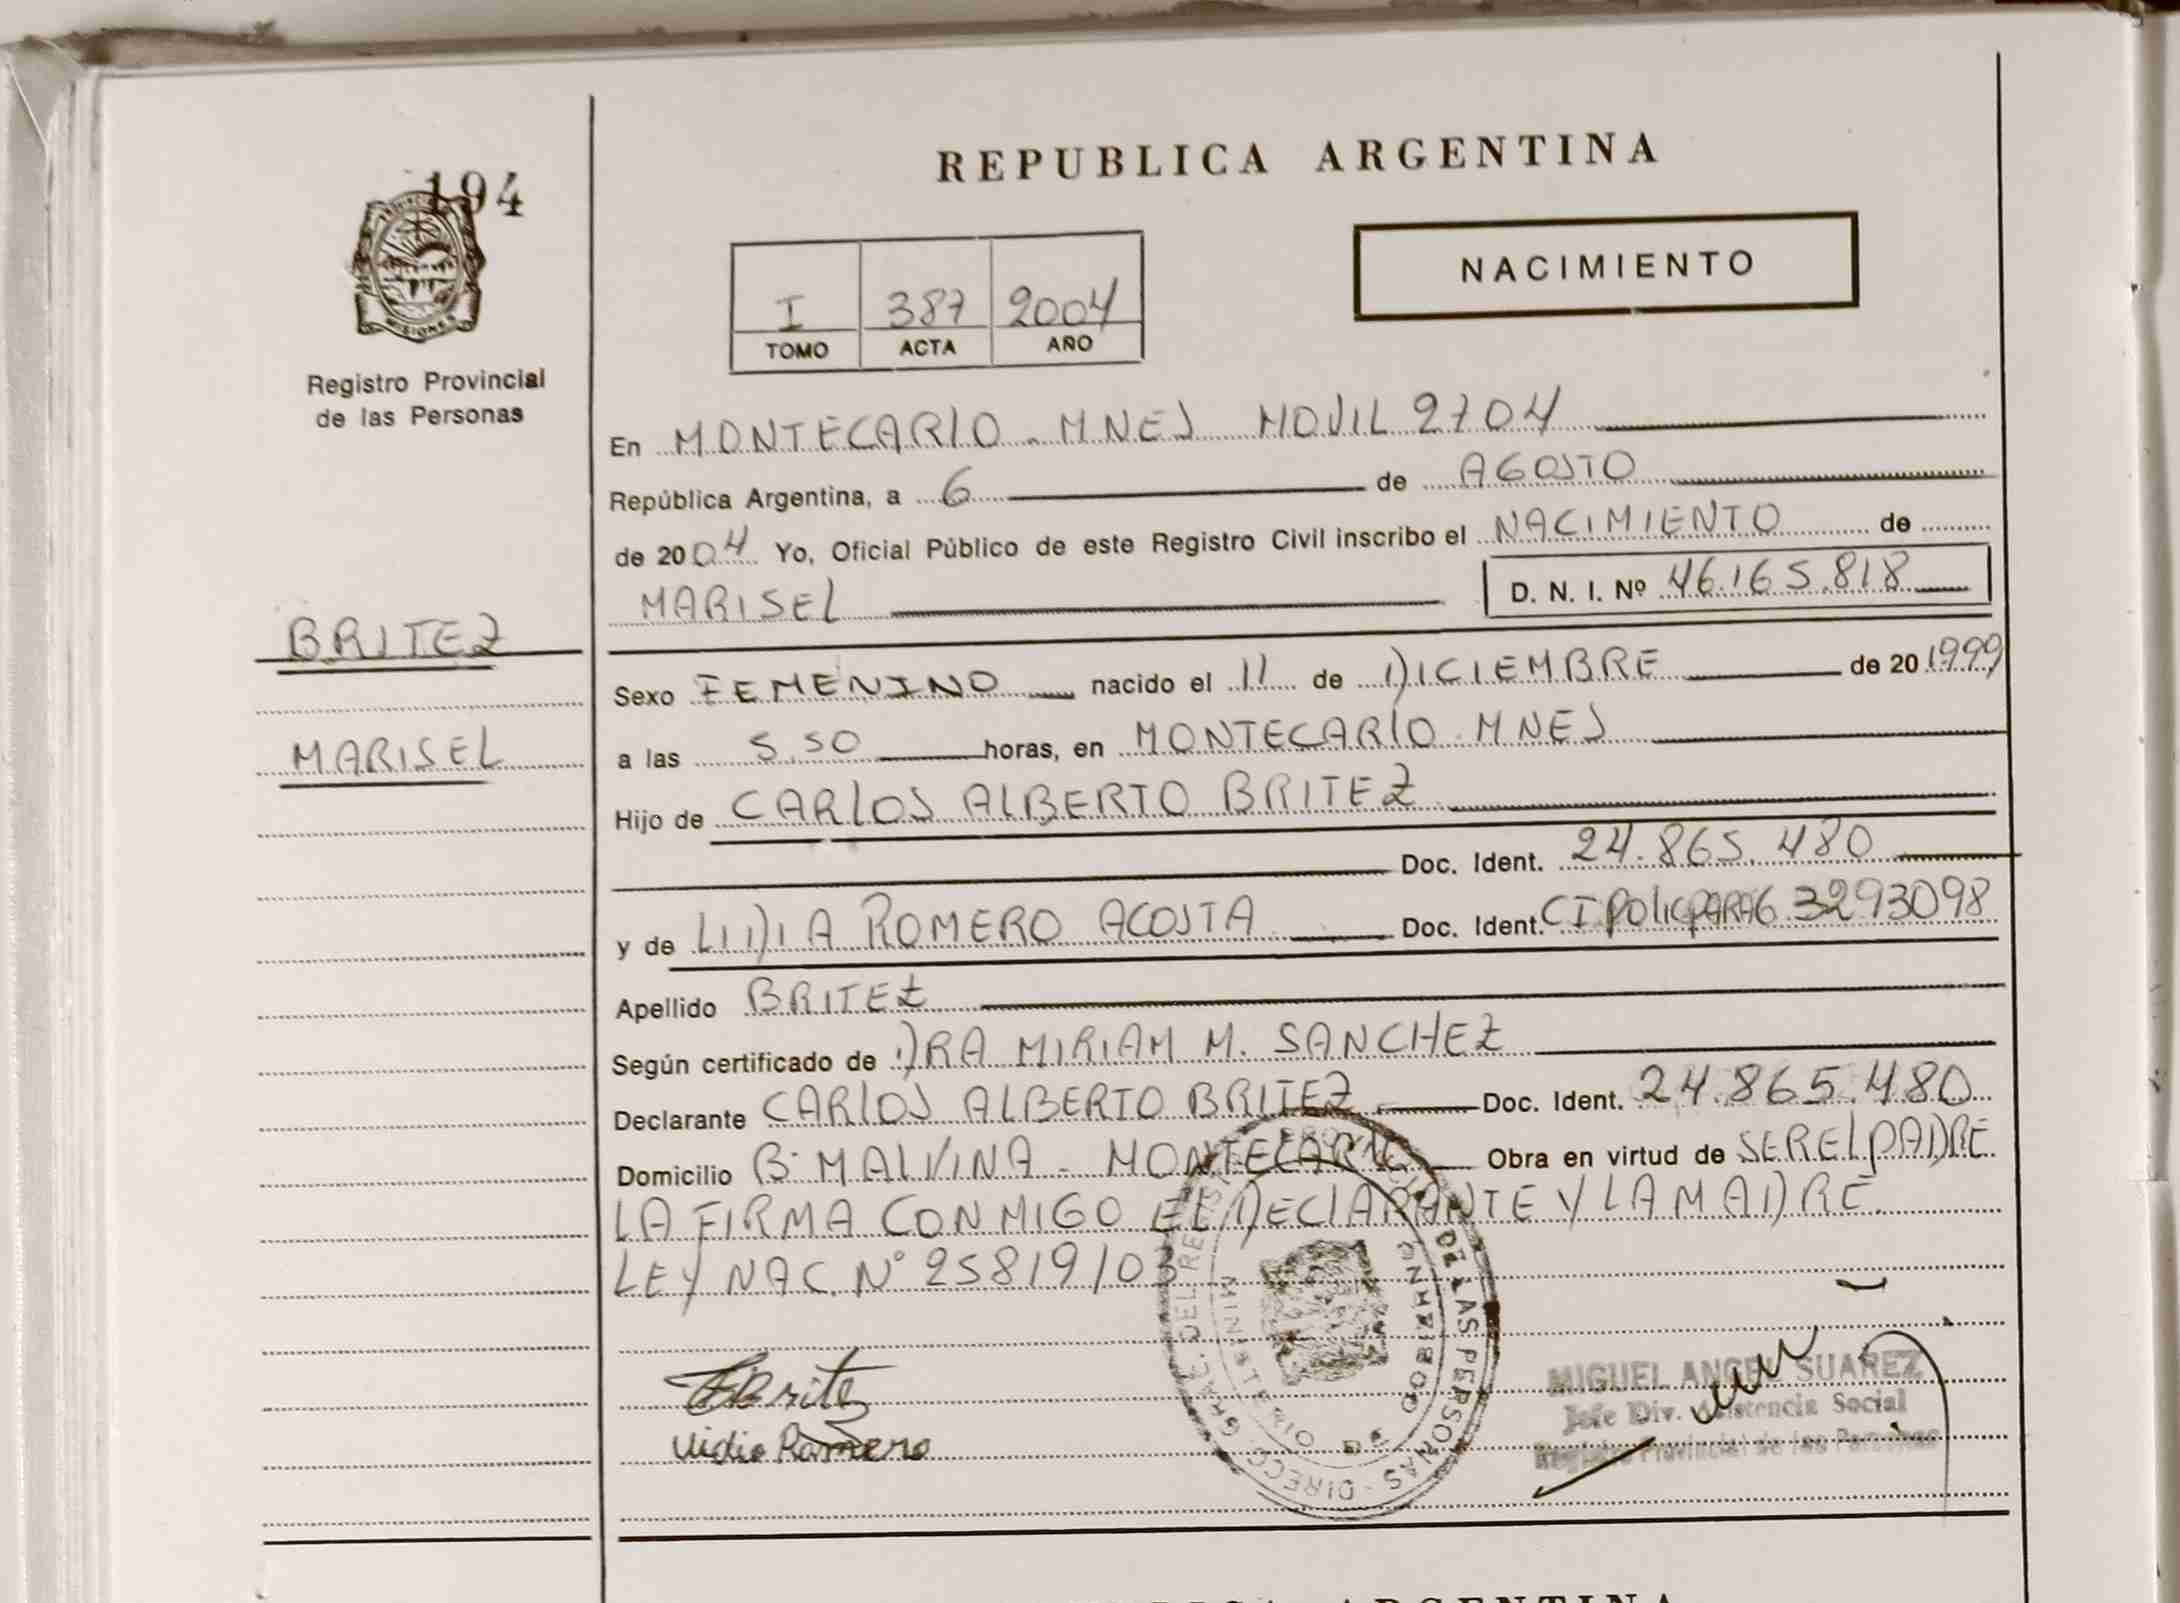 194
MISIONES
Registro Provincial
de las Personas
BRITEZ
MARISEL
REPUBLICA ARGENTINA
NACIMIENTO
I 387 2004
TOMO ACTA AÑO
En MONTECARLO. MNES MOVIL 2704
República Argentina, a 6 de AGOSTO
de 2004 Yo, Oficial Público de este Registro Civil inscribo el NACIMIENTO de
MARISEL D. N. I. Nº 46.165.818
Sexo FEMENINO nacido el 11 de DICIEMBRE de 20 1999
a las 5.50 horas, en MONTECARLO. MNES
Hijo de CARLOS ALBERTO BRITEZ
Doc. Ident. 24.865.480
y de LIDIA ROMERO ACOSTA Doc. Ident. CI POLIC PARAG 3293098
Apellido BRITEZ
Según certificado de DRA MIRIAM M. SANCHEZ
Declarante CARLOS ALBERTO BRITEZ Doc. Ident. 24.865.480
Domicilio Bº MALVINA - MONTECARLO Obra en virtud de SER EL PADRE
LA FIRMA CONMIGO EL DECLARANTE Y LA MADRE.
LEY NAC. Nº 25819/03
DIRECC. GRAL. DEL REGISTRO DE LAS PERSONAS
MINISTERIO DE GOBIERNO
Britez
Lidia Romero
MIGUEL ANGEL SUAREZ
Jefe Div. Asistencia Social
Registro Provincial de las Personas
REPUBLICA ARGENTINA